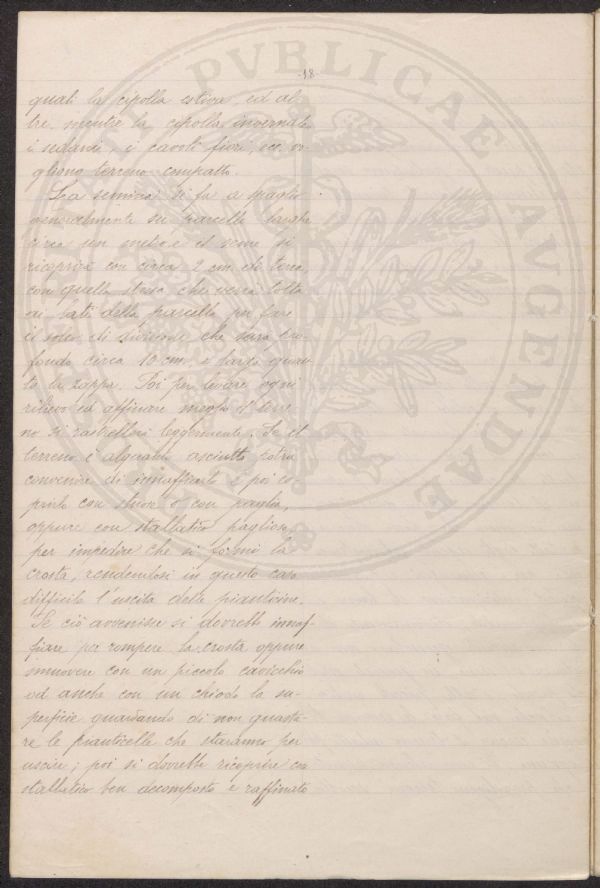 -18-
quali la cipolla estiva, ed al-
tre, mentre la cipolla invernale,
i sedani, i cavoli fiori, ecc. vo-
gliono terreno compatto.
La semina si fa a spaglio
generalmente su parcelle larghe
circa un metro e il seme si
ricoprirà con circa 2 cm. di terra,
con quella stessa che verrà tolta
ai lati della parcella per fare
il solco di divisione che sarà pro-
fondo circa 10 cm. e largo quan-
to la zappa. Poi per levare ogni
rilievo ed affinare meglio il terre-
no si rastrellerà leggermente. Se il
terreno è alquanto asciutto potrà
convenire di innaffiarlo e poi co-
prirlo con stuoie o con paglia,
oppure con stallatico paglioso,
per impedire che si formi la
crosta, rendendosi in questo caso
difficile l'uscita delle piantine.
Se ciò avvenisse si dovrebbe innaf-
fiare per rompere la crosta oppure
smuovere con un piccolo cavicchio
od anche con un chiodo la su-
perficie guardando di non guasta-
re le pianticelle che staranno per
uscire; poi si dovrebbe ricoprire con
stallatico ben decomposto e raffinato
PVBLICAE AVGENDAE